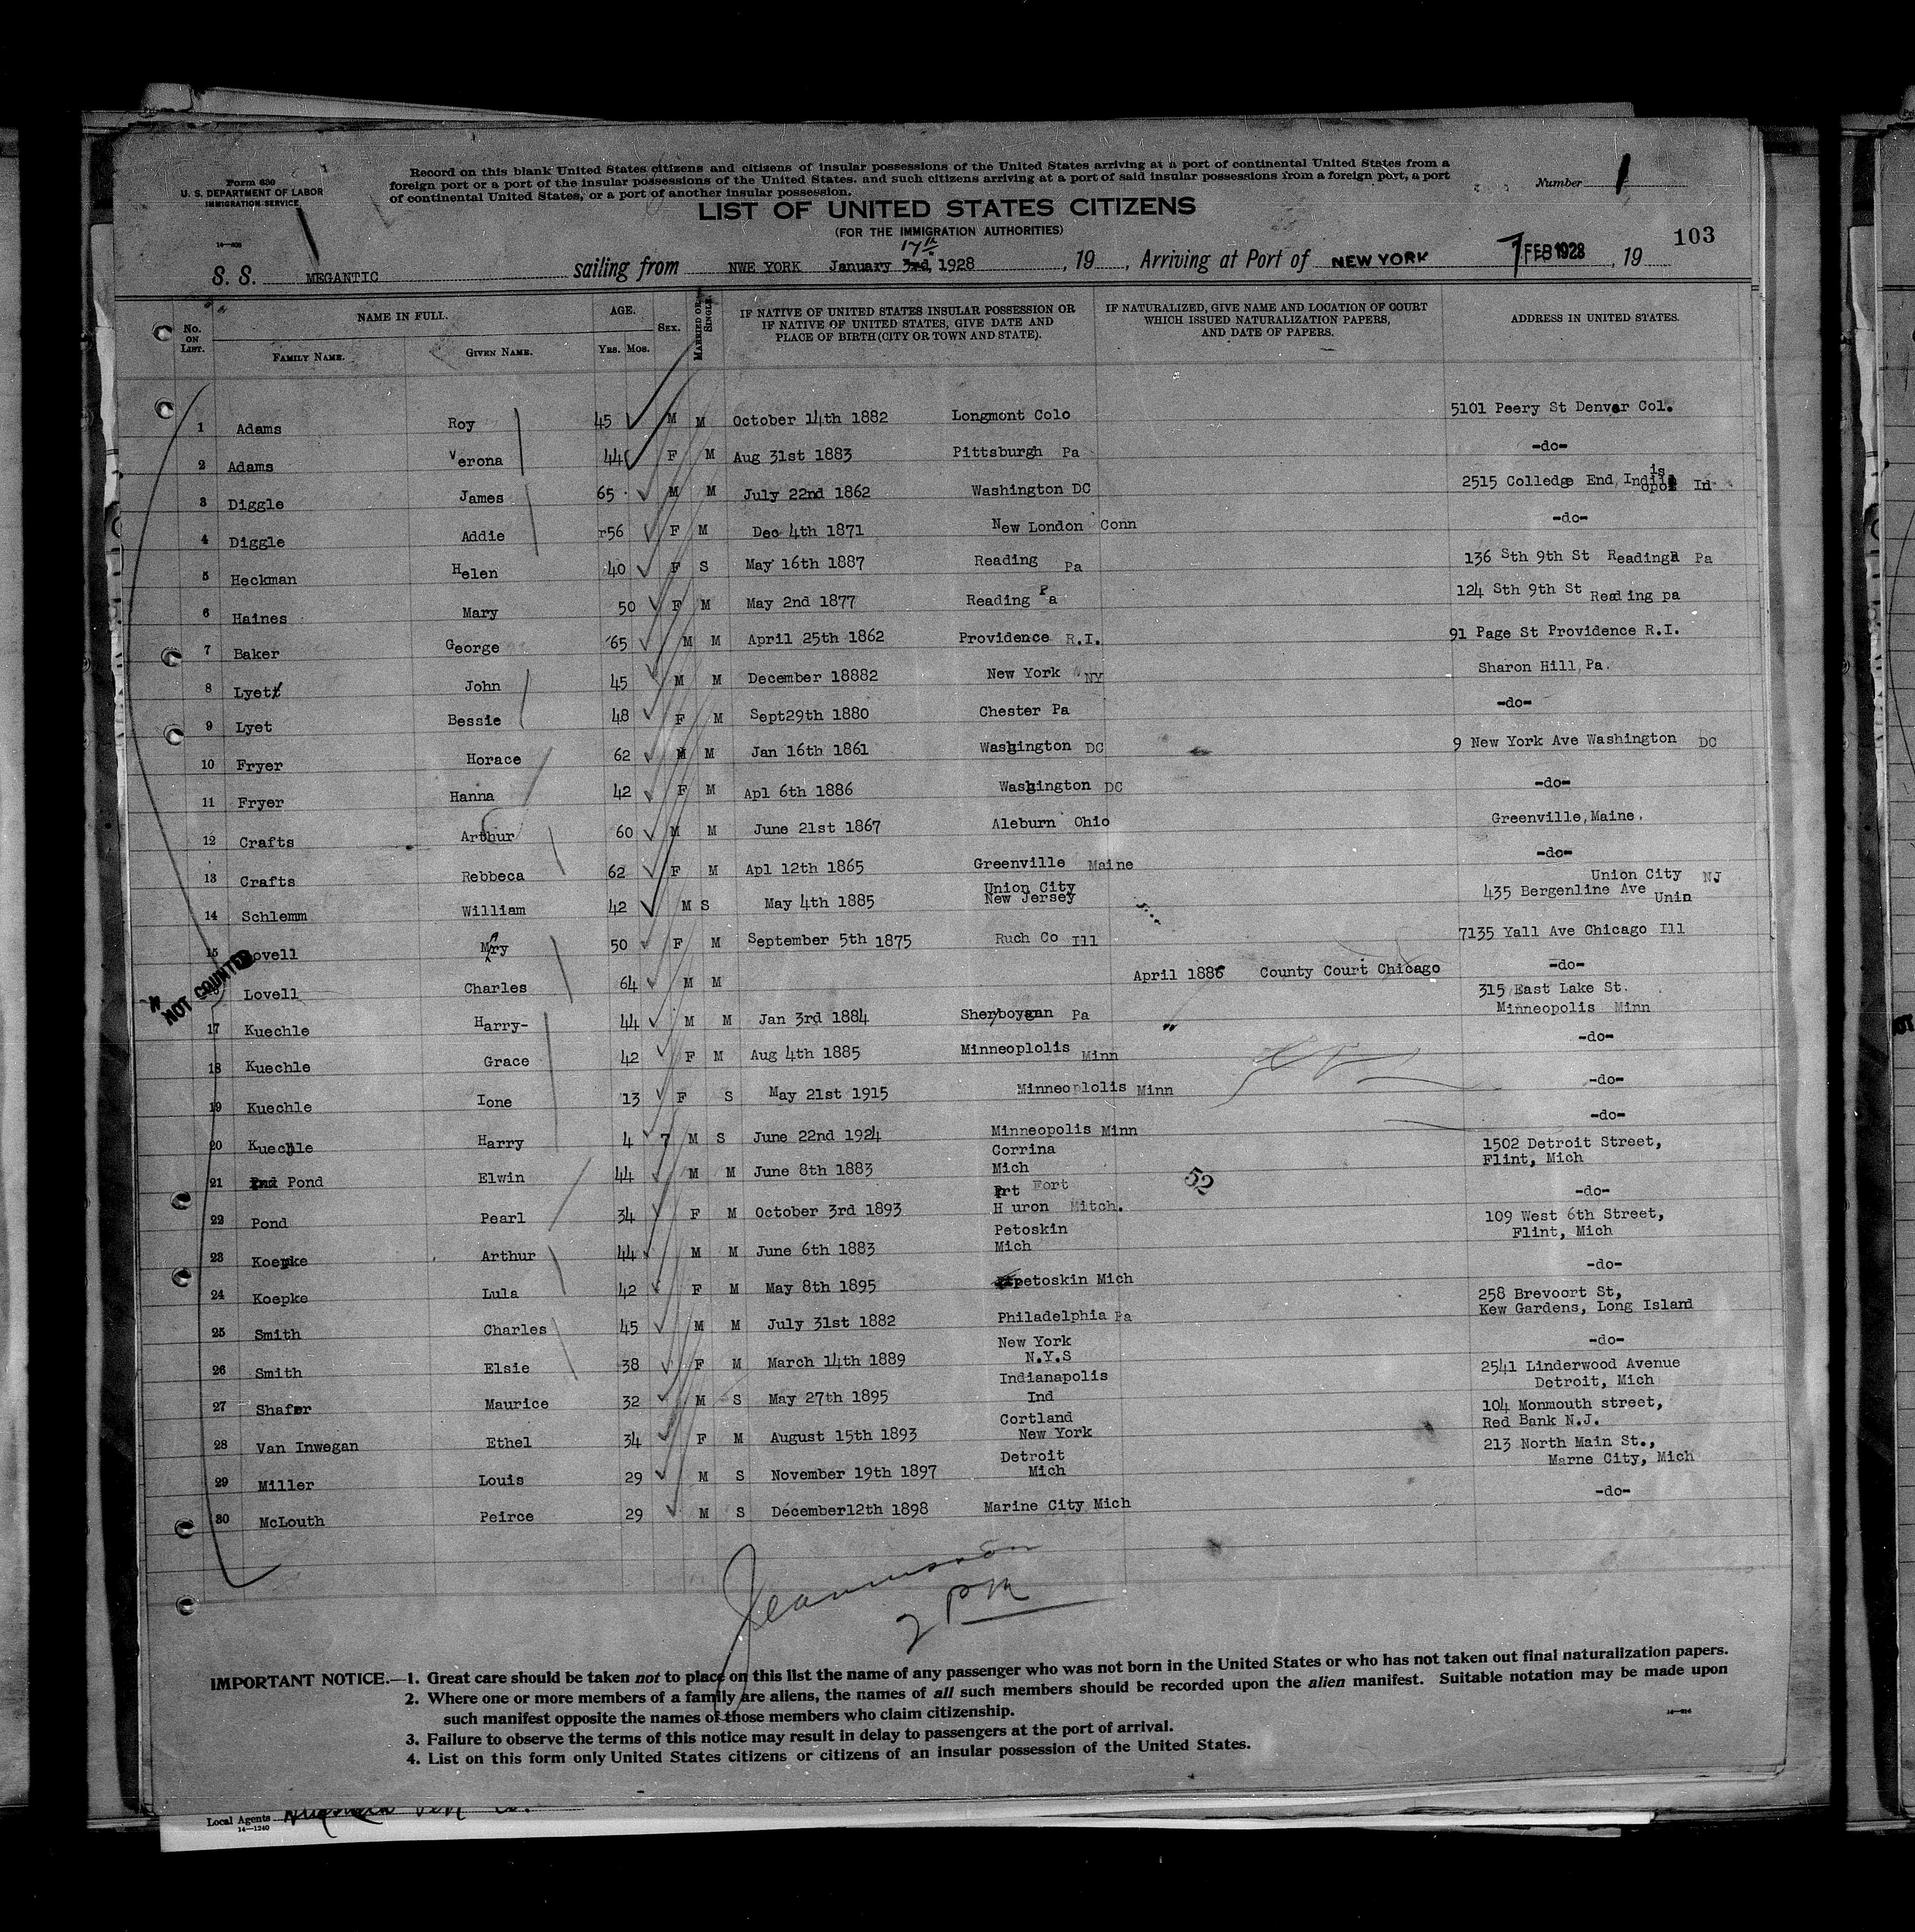 Form 630
U. S. DEPARTMENT OF LABOR
IMMIGRATION SERVICE
Record on this blank United States citizens and citizens of insular possessions of the United States arriving at a port of continental United States from a
foreign port or a port of the insular possessions of the United States. and such citizens arriving at a port of said insular possessions from a foreign port, a port
of continental United States, or a port of another insular possession.
Number 1
LIST OF UNITED STATES CITIZENS
(FOR THE IMMIGRATION AUTHORITIES)
103
17th
S. S. MEGANTIC sailing from NWE YORK January 3rd, 1928 , 19 , Arriving at Port of NEW YORK 7 FEB 1928 , 19
No. ON LIST.
NAME IN FULL.
FAMILY NAME.
GIVEN NAME.
AGE.
YRS. MOS.
SEX.
MARRIED OR SINGLE.
IF NATIVE OF UNITED STATES INSULAR POSSESSION OR
IF NATIVE OF UNITED STATES, GIVE DATE AND
PLACE OF BIRTH (CITY OR TOWN AND STATE).
IF NATURALIZED, GIVE NAME AND LOCATION OF COURT
WHICH ISSUED NATURALIZATION PAPERS,
AND DATE OF PAPERS.
ADDRESS IN UNITED STATES.
1 Adams Roy 45 M M October 14th 1882 Longmont Colo 5101 Peery St Denver Col.
2 Adams Verona 44 F M Aug 31st 1883 Pittsburgh Pa -do-
3 Diggle James 65 M M July 22nd 1862 Washington DC 2515 Colledge End In
4 Diggle Addie r56 F M Dec 4th 1871 New London Conn -do-
5 Heckman Helen 40 F S May 16th 1887 Reading Pa 136 Sth 9th St Reading Pa
6 Haines Mary 50 F M May 2nd 1877 Reading Pa 124 Sth 9th St Reading pa
7 Baker George 65 M M April 25th 1862 Providence R.I. 91 Page St Providence R.I.
8 Lyett John 45 M M December 18882 New York NY Sharon Hill Pa.
9 Lyet Bessie 48 F M Sept29th 1880 Chester Pa -do-
10 Fryer Horace 62 M M Jan 16th 1861 Washington DC 9 New York Ave Washington DC
11 Fryer Hanna 42 F M Apl 6th 1886 Washington DC -do-
12 Crafts Arthur 60 M M June 21st 1867 Aleburn Ohio Greenville, Maine.
13 Crafts Rebbeca 62 F M Apl 12th 1865 Greenville Maine -do-
14 Schlemm William 42 M S May 4th 1885 Union City New Jersey 435 Bergenline Ave Union City NJ Unin
15 Lovell Mary 50 F M September 5th 1875 Ruch Co Ill 7135 Yall Ave Chicago Ill
NOT COUNTED
Lovell Charles 64 M M April 1886 County Court Chicago -do-
17 Kuechle Harry- 44 M M Jan 3rd 1884 Sherboygan Pa 315 East Lake St. Minneopolis Minn
18 Kuechle Grace 42 F M Aug 4th 1885 Minneoplolis Minn -do-
19 Kuechle Ione 13 F S May 21st 1915 Minneoplolis Minn -do-
20 Kuechle Harry 4 7 M S June 22nd 1924 Minneopolis Minn -do-
21 Pond Elwin 44 M M June 8th 1883 Corrina Mich 1502 Detroit Street, Flint, Mich
52
22 Pond Pearl 34 F M October 3rd 1893 Prt Fort Huron Mitch. -do-
23 Koepke Arthur 44 M M June 6th 1883 Petoskin Mich 109 West 6th Street, Flint, Mich
24 Koepke Lula 42 F M May 8th 1895 petoskin Mich -do-
25 Smith Charles 45 M M July 31st 1882 Philadelphia Pa 258 Brevoort St, Kew Gardens, Long Island
26 Smith Elsie 38 F M March 14th 1889 New York N.Y.S -do-
27 Shafer Maurice 32 M S May 27th 1895 Indianapolis Ind 2541 Linderwood Avenue Detroit, Mich
28 Van Inwegan Ethel 34 F M August 15th 1893 Cortland New York 104 Monmouth street, Red Bank N.J.
29 Miller Louis 29 M S November 19th 1897 Detroit Mich 213 North Main St., Marne City, Mich
30 McLouth Peirce 29 M S December12th 1898 Marine City Mich -do-
2 PM
IMPORTANT NOTICE.—1. Great care should be taken not to place on this list the name of any passenger who was not born in the United States or who has not taken out final naturalization papers.
2. Where one or more members of a family are aliens, the names of all such members should be recorded upon the alien manifest. Suitable notation may be made upon
such manifest opposite the names of those members who claim citizenship.
3. Failure to observe the terms of this notice may result in delay to passengers at the port of arrival.
4. List on this form only United States citizens or citizens of an insular possession of the United States.
Local Agents
14—1240